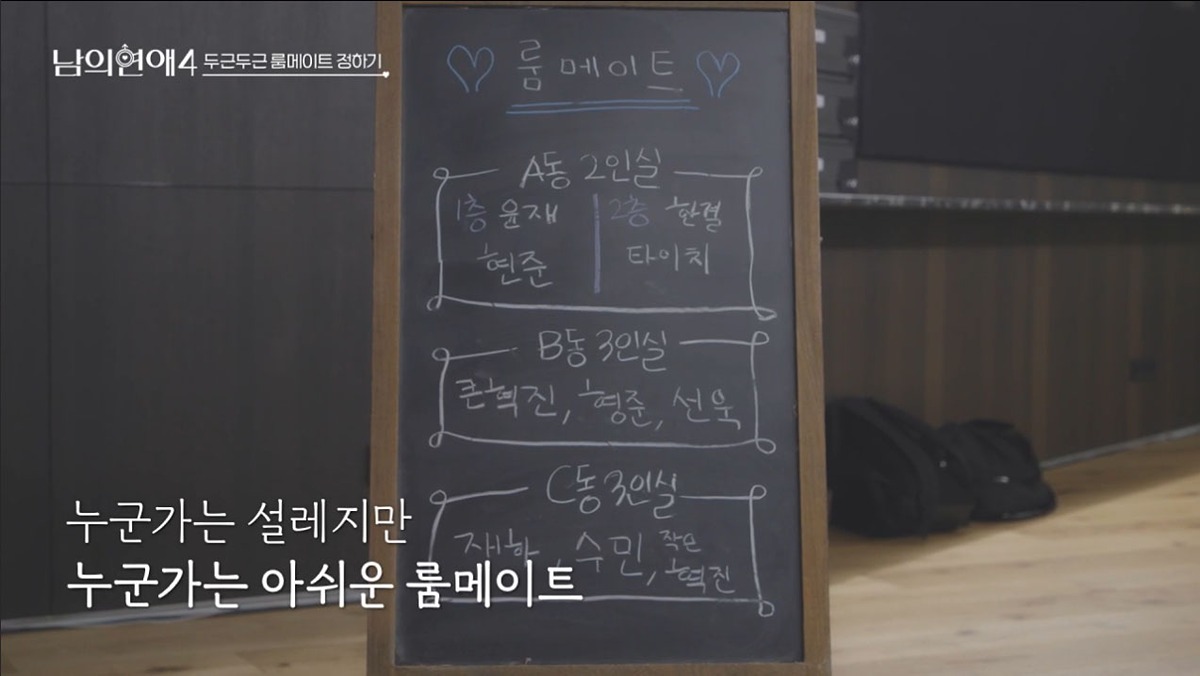 남의연애4 두근두근 룸메이트 정하기
♡ 룸메이트 ♡
A동 2인실
1층 윤재 | 2층 한결
현준 타이치
B동 3인실
큰혁진, 형준, 선욱
C동 3인실
재하, 수민, 작은혁진
누군가는 설레지만
누군가는 아쉬운 룸메이트